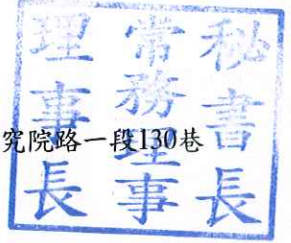 秘書長
常務理事
理事長
究院路一段130巷